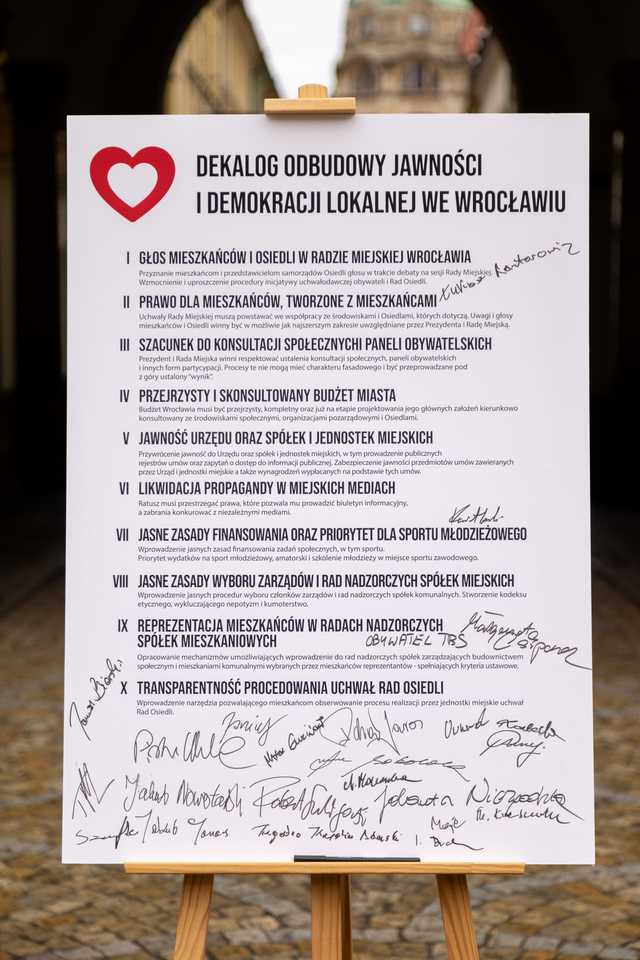 DEKALOG ODBUDOWY JAWNOŚCI
I DEMOKRACJI LOKALNEJ WE WROCŁAWIU
I GŁOS MIESZKAŃCÓW I OSIEDLI W RADZIE MIEJSKIEJ WROCŁAWIA
Przyznanie mieszkańcom i przedstawicielom samorządów Osiedli głosu w trakcie debaty na sesji Rady Miejskiej.
Wzmocnienie i uproszczenie procedury inicjatywy uchwałodawczej obywateli i Rad Osiedli.
II PRAWO DLA MIESZKAŃCÓW, TWORZONE Z MIESZKAŃCAMI
Uchwały Rady Miejskiej muszą powstawać we współpracy ze środowiskami i Osiedlami, których dotyczą. Uwagi i głosy
mieszkańców i Osiedli winny być w możliwie jak najszerszym zakresie uwzględniane przez Prezydenta i Radę Miejską.
III SZACUNEK DO KONSULTACJI SPOŁECZNYCH I PANELI OBYWATELSKICH
Prezydent i Rada Miejska winni respektować ustalenia konsultacji społecznych, paneli obywatelskich
i innych form partycypacji. Procesy te nie mogą mieć charakteru fasadowego i być przeprowadzane pod
z góry ustalony "wynik".
IV PRZEJRZYSTY I SKONSULTOWANY BUDŻET MIASTA
Budżet Wrocławia musi być przejrzysty, kompletny oraz już na etapie projektowania jego głównych założeń kierunkowo
konsultowany ze środowiskami społecznymi, organizacjami pozarządowymi i Osiedlami.
V JAWNOŚĆ URZĘDU ORAZ SPÓŁEK I JEDNOSTEK MIEJSKICH
Przywrócenie jawność do Urzędu oraz spółek i jednostek miejskich, w tym prowadzenie publicznych
rejestrów umów oraz zapytań o dostęp do informacji publicznej. Zabezpieczenie jawności przedmiotów umów zawieranych
przez Urząd i jednostki miejskie a także wynagrodzeń wypłacanych na podstawie tych umów.
VI LIKWIDACJA PROPAGANDY W MIEJSKICH MEDIACH
Ratusz musi przestrzegać prawa, które pozwala mu prowadzić biuletyn informacyjny,
a zabrania konkurować z niezależnymi mediami.
VII JASNE ZASADY FINANSOWANIA ORAZ PRIORYTET DLA SPORTU MŁODZIEŻOWEGO
Wprowadzenie jasnych zasad finansowania zadań społecznych, w tym sportu.
Priorytet wydatków na sport młodzieżowy, amatorski i szkolenie młodzieży w miejsce sportu zawodowego.
VIII JASNE ZASADY WYBORU ZARZĄDÓW I RAD NADZORCZYCH SPÓŁEK MIEJSKICH
Wprowadzenie jasnych procedur wyboru członków zarządów i rad nadzorczych spółek komunalnych. Stworzenie kodeksu
etycznego, wykluczającego nepotyzm i kumoterstwo.
IX REPREZENTACJA MIESZKAŃCÓW W RADACH NADZORCZYCH
SPÓŁEK MIESZKANIOWYCH
OBYWATEL TBS
Opracowanie mechanizmów umożliwiających wprowadzenie do rad nadzorczych spółek zarządzających budownictwem
społecznym i mieszkaniami komunalnymi wybranych przez mieszkańców reprezentantów - spełniających kryteria ustawowe.
X TRANSPARENTNOŚĆ PROCEDOWANIA UCHWAŁ RAD OSIEDLI
Wprowadzenie narzędzia pozwalającego mieszkańcom obserwowanie procesu realizacji przez jednostki miejskie uchwał
Rad Osiedli.
Jakub Nowotarski
Jakub Janas